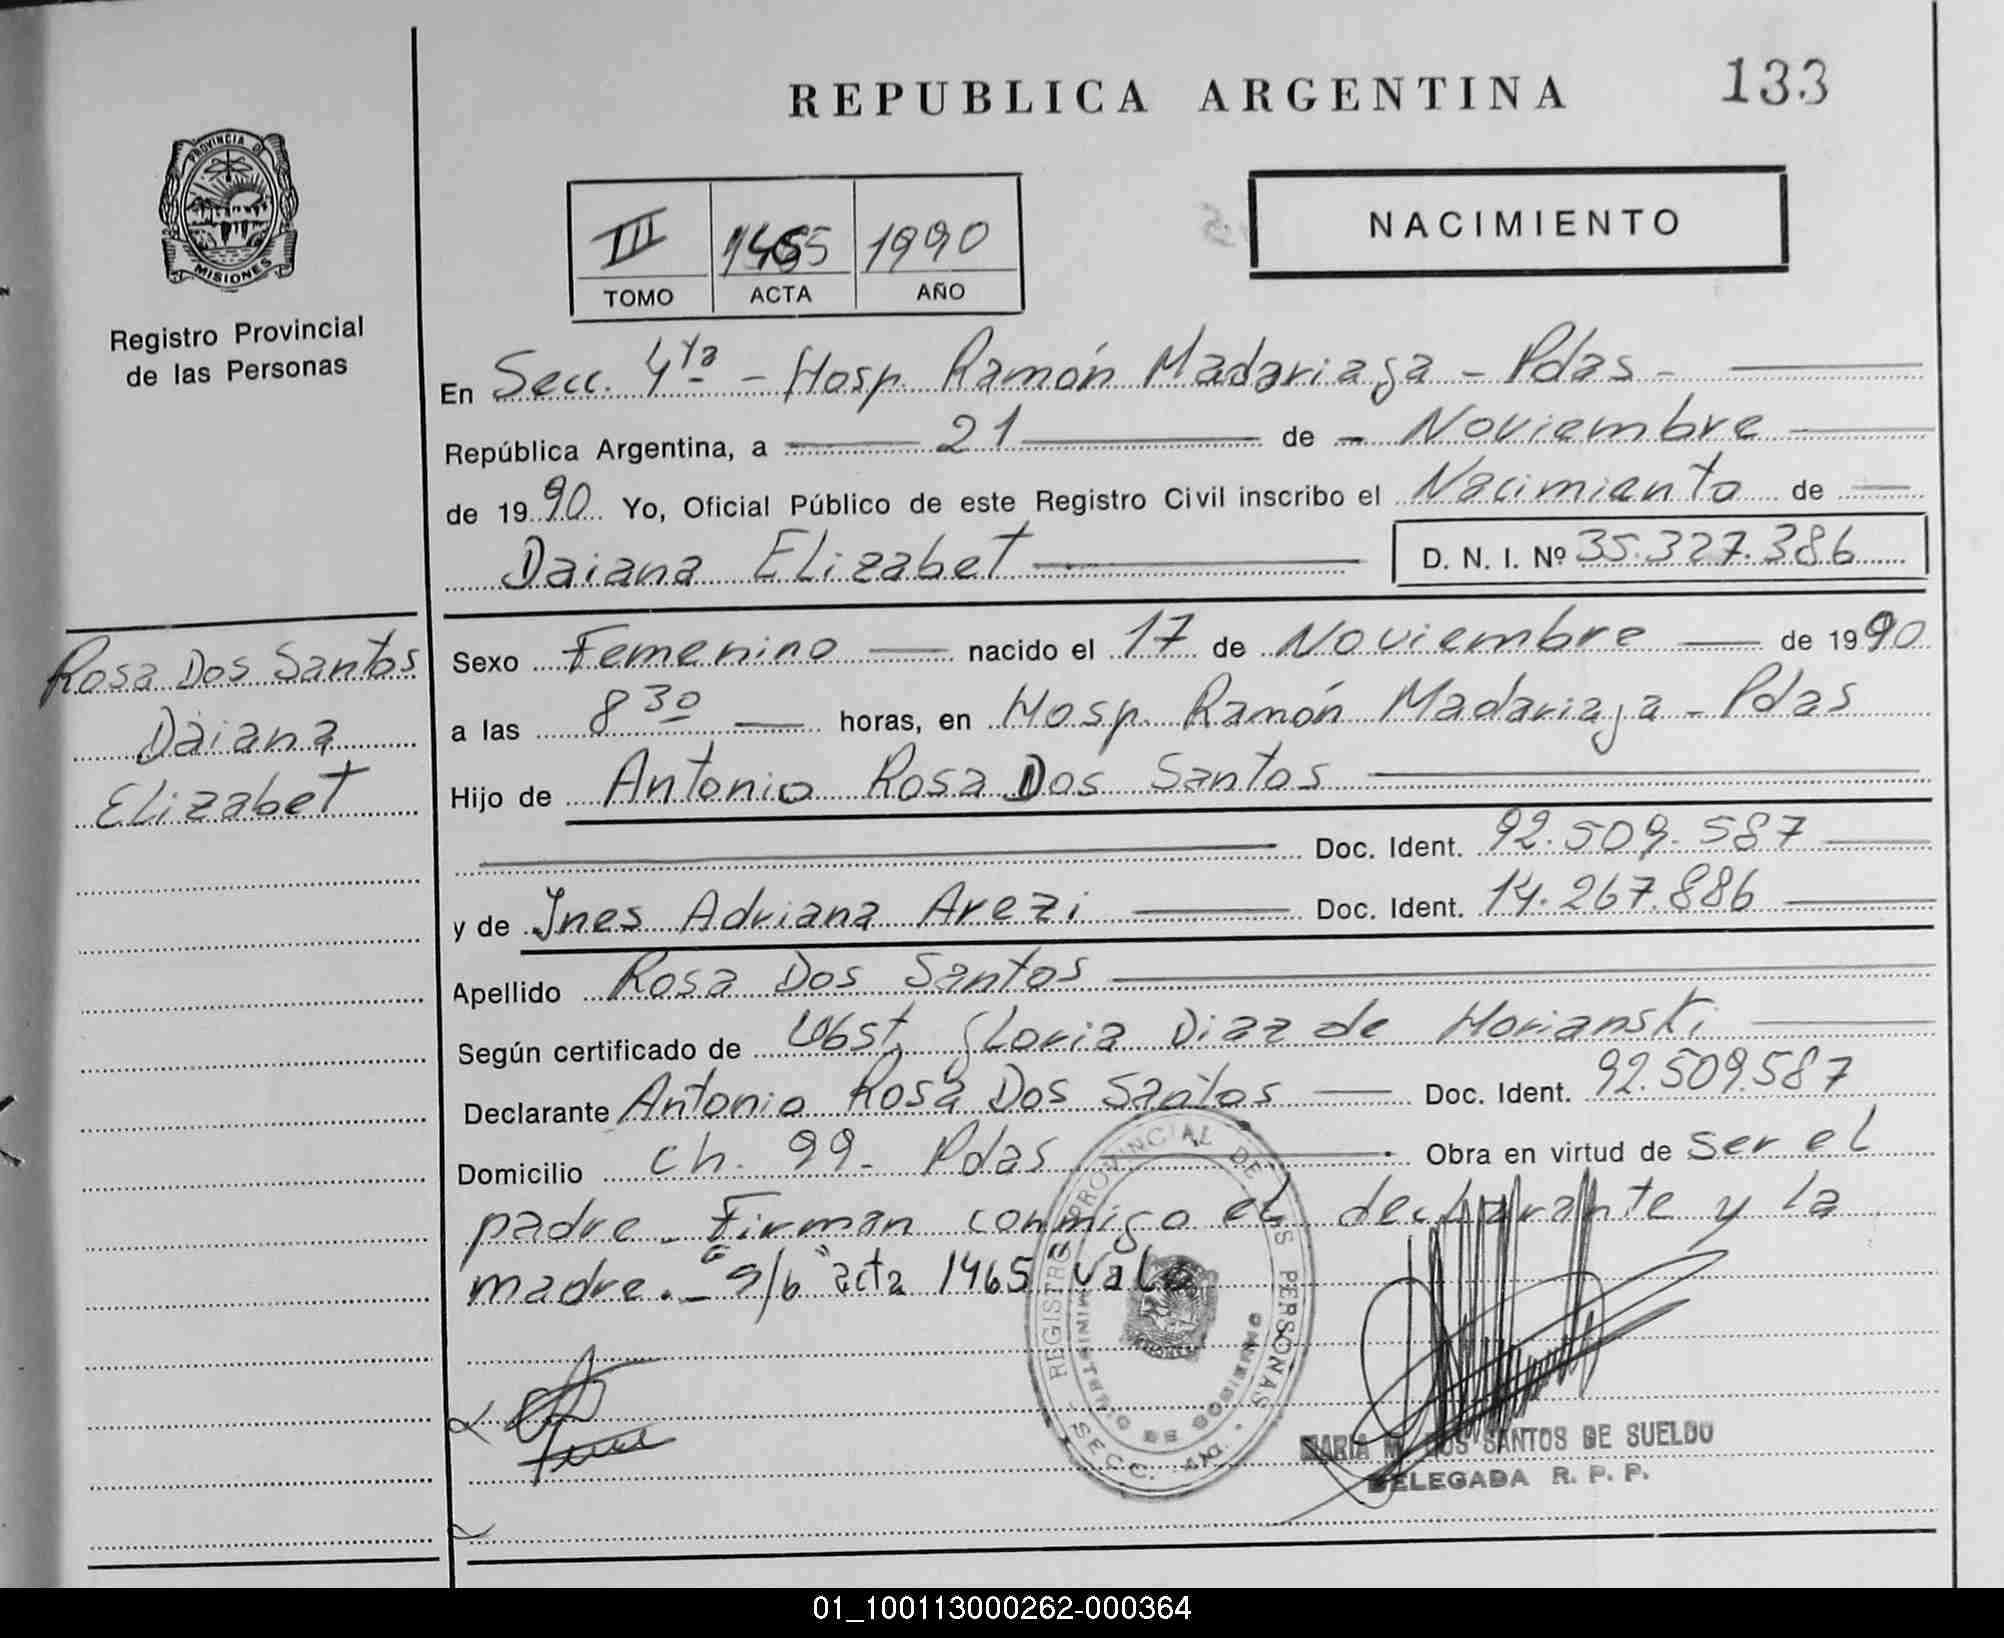 REPUBLICA ARGENTINA
133
PROVINCIA DE
MISIONES
Registro Provincial
de las Personas
III 1465 1990
TOMO ACTA AÑO
NACIMIENTO
En Secc. 4ta - Hosp. Ramón Madariaga - Pdas -
República Argentina, a 21 de Noviembre
de 1990 Yo, Oficial Público de este Registro Civil inscribo el Nacimiento de
Daiana Elizabet D. N. I. Nº 35.327.386
Rosa Dos Santos
Daiana
Elizabet
Sexo Femenino nacido el 17 de Noviembre de 1990
a las 8 30 horas, en Hosp. Ramón Madariaga - Pdas
Hijo de Antonio Rosa Dos Santos
Doc. Ident. 92.509.587
y de Ines Adriana Arezi Doc. Ident. 14.267.886
Apellido Rosa Dos Santos
Según certificado de Obst. Gloria Diaz de Morianski
Declarante Antonio Rosa Dos Santos Doc. Ident. 92.509.587
Domicilio Ch. 99- Pdas Obra en virtud de ser el
padre - Firman conmigo el declarante y la
madre. - "s/b" acta 1465 vale
REGISTRO PROVINCIAL DE LAS PERSONAS
MINISTERIO DE GOBIERNO
- SECC. 4ta. -
MARIA M. DOS SANTOS DE SUELDO
DELEGADA R. P. P.
01_100113000262-000364